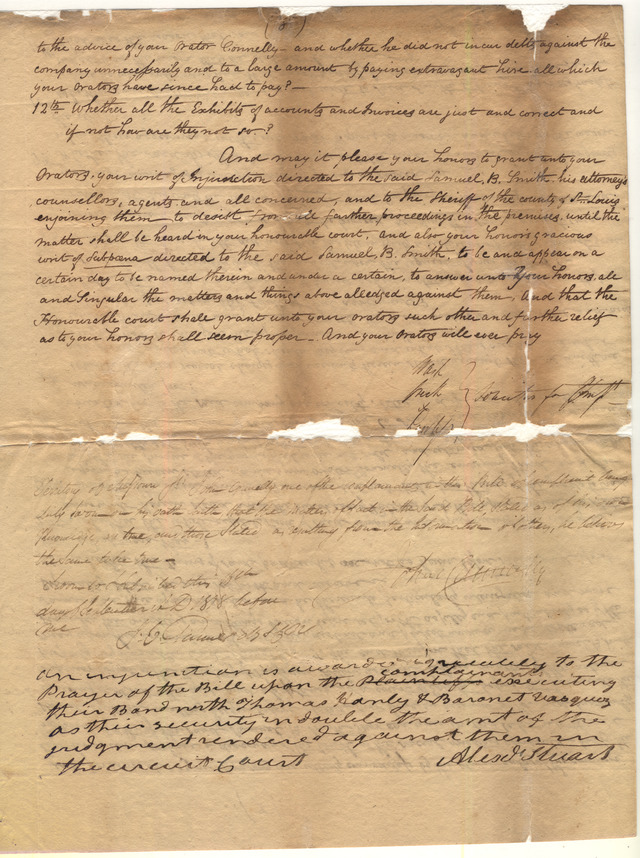 to the advice of your Orator Connelly – and whether he did not incur debts against the
company unnecessarily and to a large amount by paying extravagant hire all which
your Orators have since had to pay? –
12th Whether all the Exhibits of accounts and Invoices are just and correct and
if not how are they not so?
And may it please your honors to grant unto your
Orators, your writ of Injunction directed to the said Samuel, B. Smith, his attorneys
counsellors, agents and all concerned, and to the Sheriff of the county of St. Louis
enjoining them to desist from all further proceedings in the premises, until the
matter shall be heard in your honourable court, and also your honors gracious
writ of Subpana directed to the said Samuel, B. Smith, to be and appear on a
certain day to be named therein and under a certain, to answer unto your honors, all
and Singular the matters and things above alledged against them, And that the
Honourable court shall grant unto your Orators such other and further relief
as to your honors shall seem proper – And your Orators will ever pray
for Compts
Territory of Missouri
one of the complainants in the
oath that the matters
knowledge are true, and those Stated as he believes
the same to be true –
John Connelly
day September A D 1818 before
me
An injunction is awarded agreeably to the
Prayer of the Bill upon the Plaintiffs complainants executing
their Bond with Thomas Hanly & Baronet Vasquez
as their security in double the amt of the
judgment rendered against them in
the circuit Court Alexr Stuart